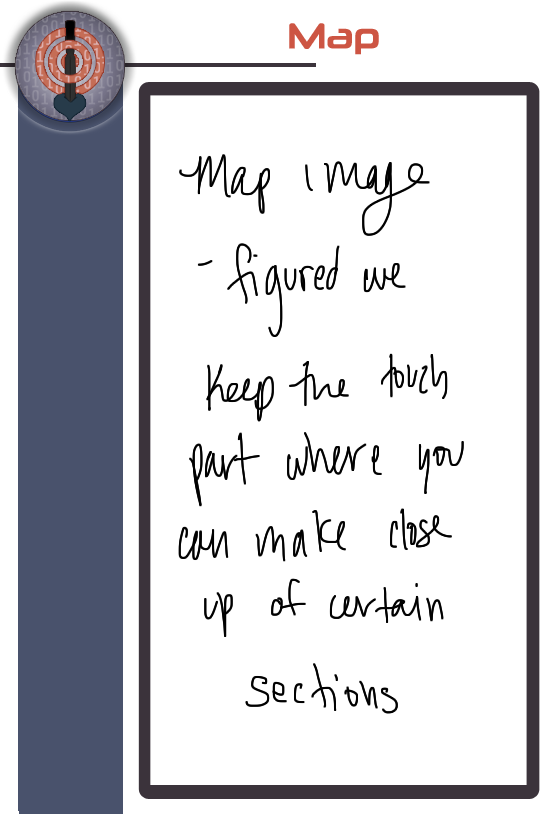 Map
Map image
- figured we
keep the touch
part where you
can make close
up of certain
sections